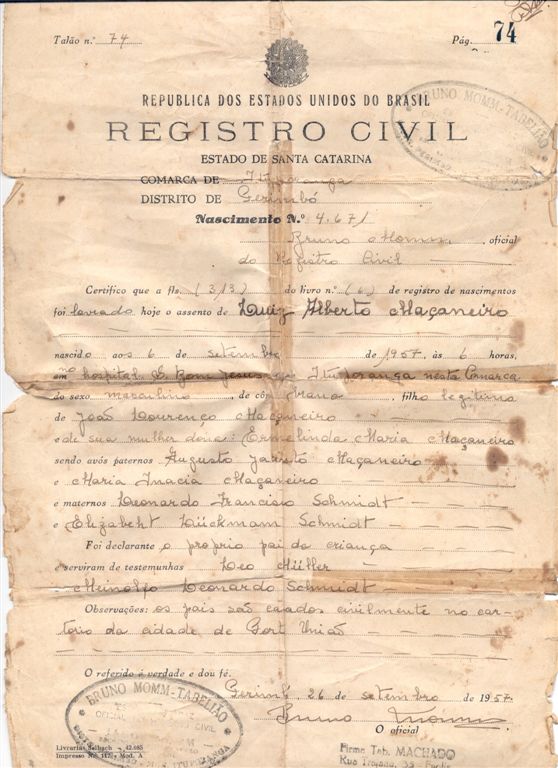 Talão n.º 74
Pág. 74
REPUBLICA DOS ESTADOS UNIDOS DO BRASIL
REGISTRO CIVIL
ESTADO DE SANTA CATARINA
COMARCA DE Ituporanga
DISTRITO DE Gerimbó
Nascimento N.º 4.671
Bruno Momm, oficial
do Registro Civil
BRUNO MOMM-TABELIÃO
Certifico que a fls. (313) do livro n.º (6) de registro de nascimentos
foi lavrado hoje o assento de Luiz Alberto Maçaneiro
nascido aos 6 de setembro de 1957, às 6 horas,
em no hospital S. Bom Jesus de Ituporanga nesta Comarca
do sexo masculino, de côr branca, filho legitimo
de João Lourenço Maçaneiro
e de sua mulher dona: Ermelinda Maria Maçaneiro
sendo avós paternos Augusto Maçaneiro
e Maria Inacia Maçaneiro
e maternos Leonardo Francisco Schmidt
e Elizabeht Lückmann Schmidt
Foi declarante o proprio pai da criança
e serviram de testemunhas Leo Müller
Meinolfo Leonardo Schmidt
Observações: os pais são casados civilmente no car-
torio da cidade de Port União
O referido é verdade e dou fé.
Gerimbó 26 de setembro de 1957.
Bruno Momm
O oficial
BRUNO MOMM-TABELIÃO
OFICIAL REGISTRO CIVIL
ITUPORANGA
Livrarias Selbach - 42.085
Impresso N.º 112
Firma Tab. MACHADO
Rua Trajano, 33